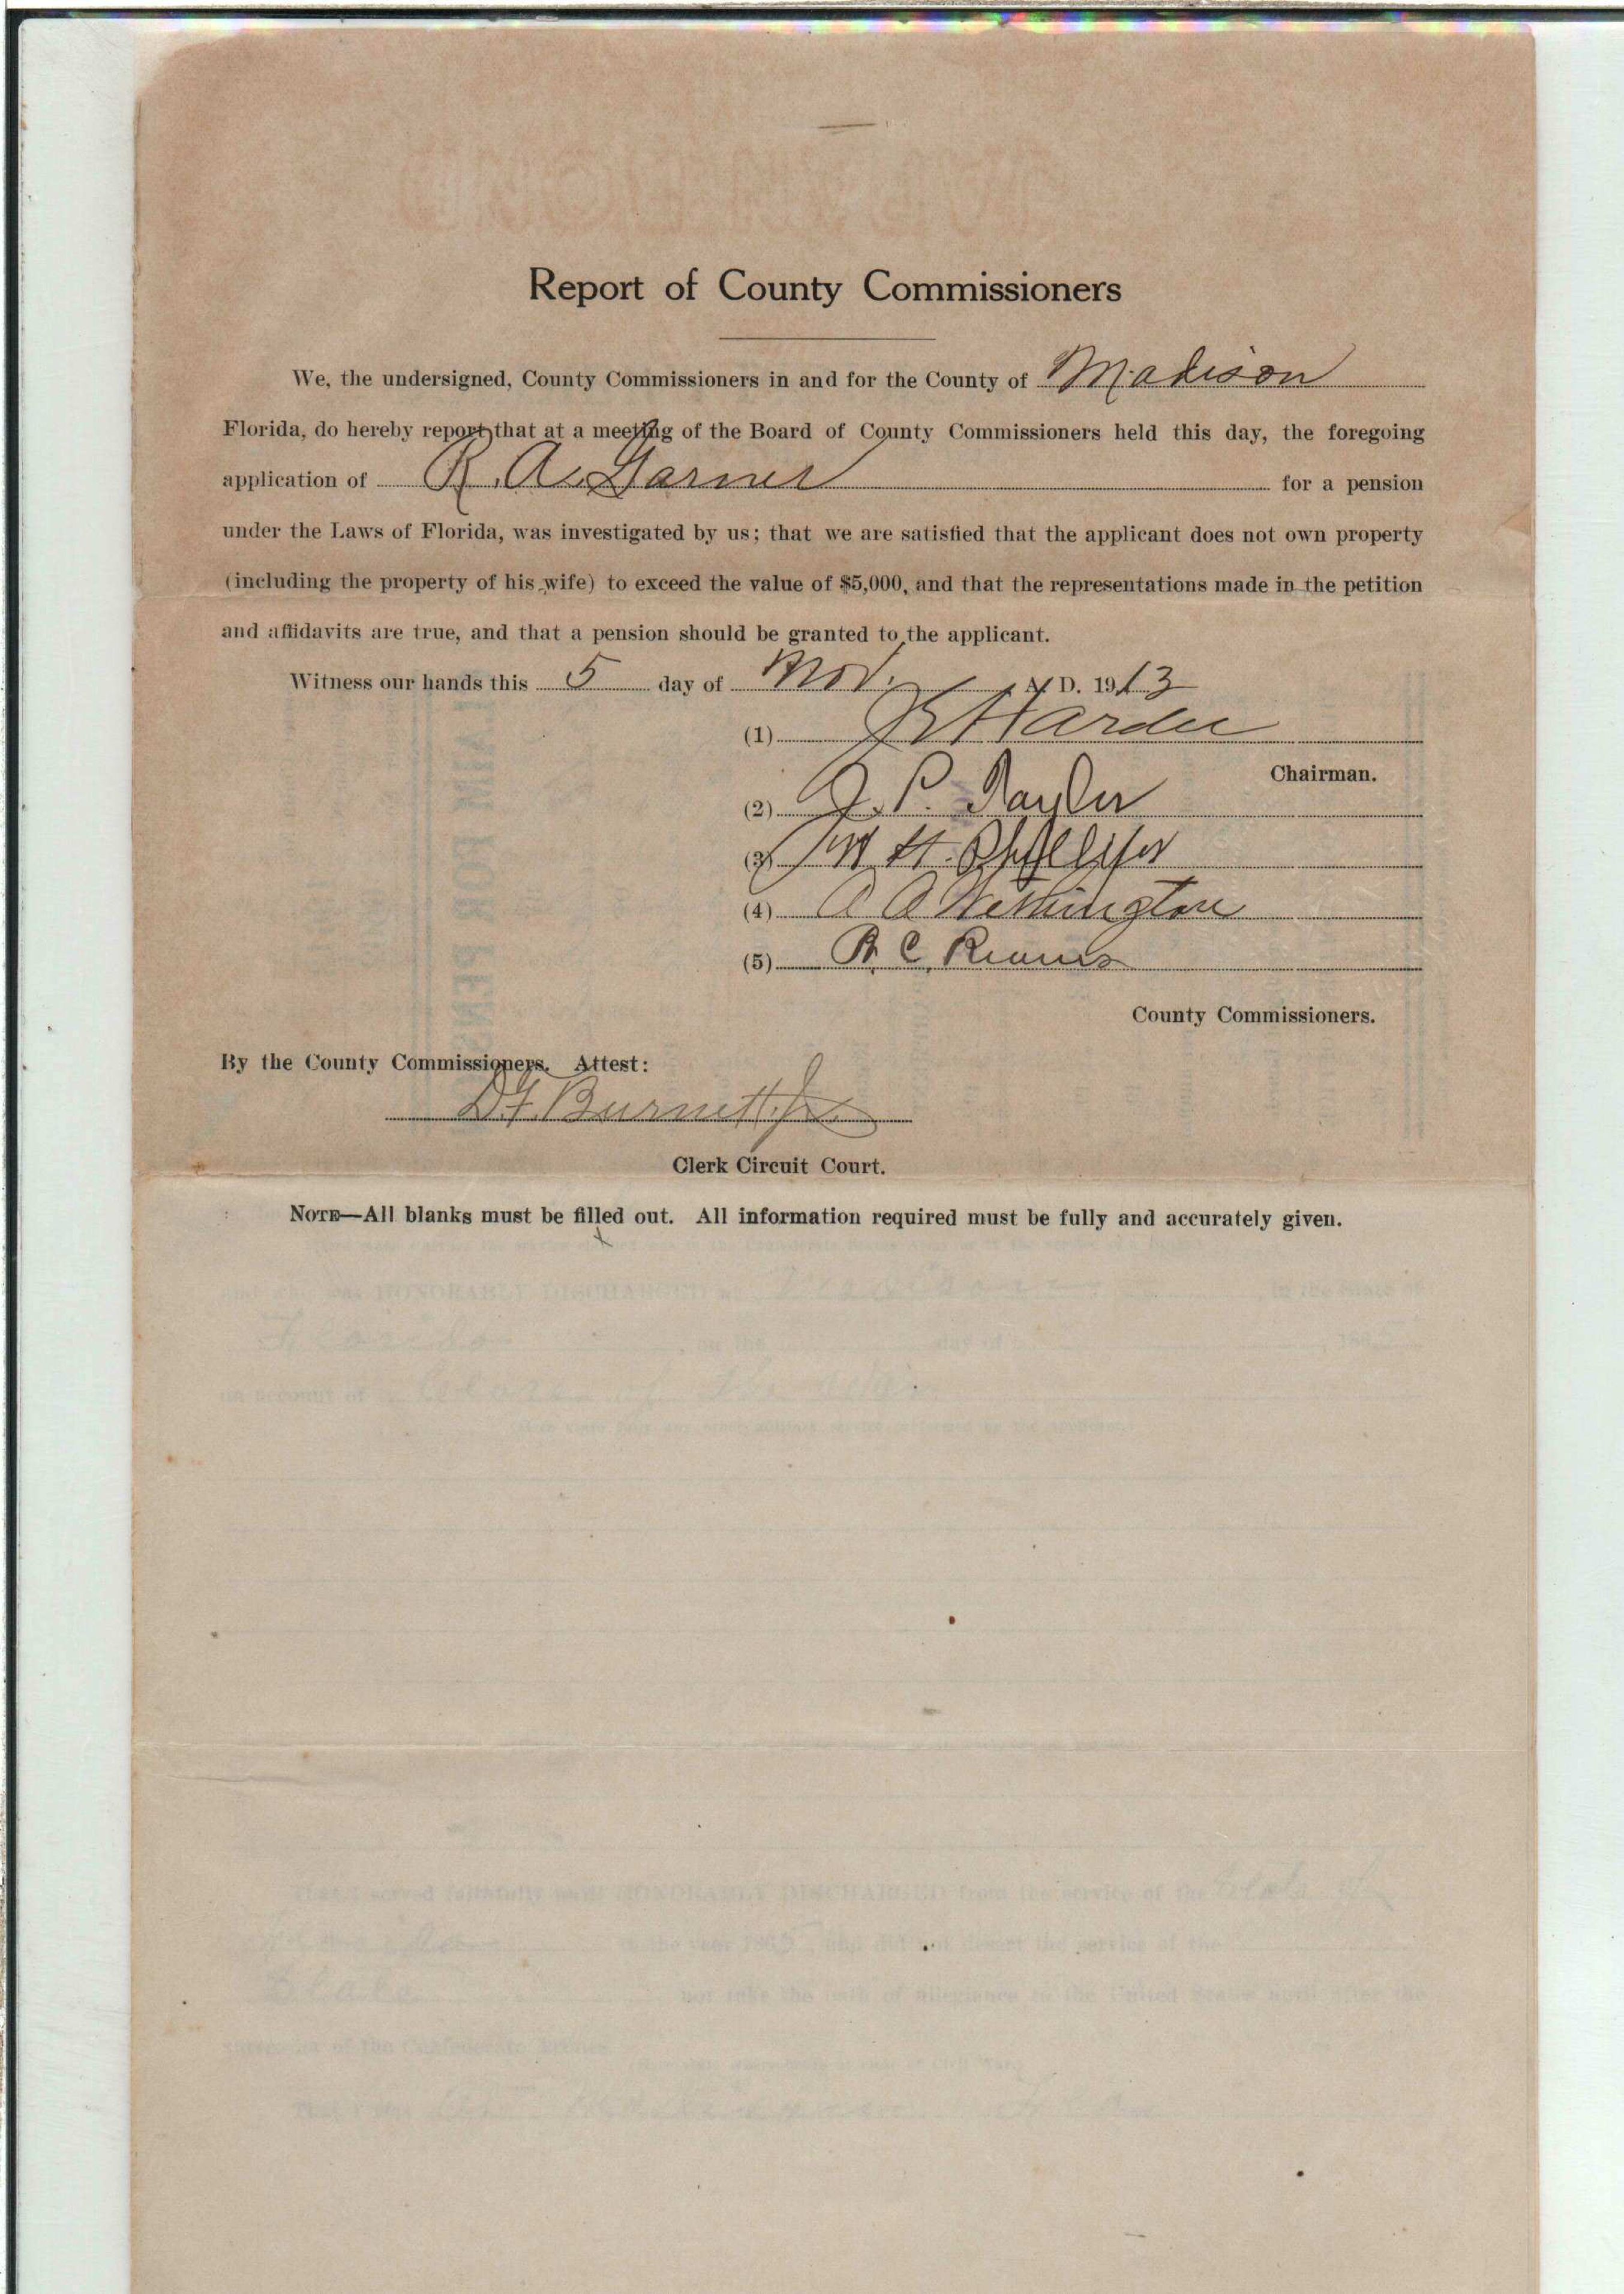 Report of County Commissioners
We, the undersigned, County Commissioners in and for the County of Madison
Florida, do hereby report that at a meeting of the Board of County Commissioners held this day, the foregoing
application of R. A. Garner for a pension
under the Laws of Florida, was investigated by us; that we are satisfied that the applicant does not own property
(including the property of his wife) to exceed the value of $5,000, and that the representations made in the petition
and affidavits are true, and that a pension should be granted to the applicant.
Witness our hands this 5 day of Nov. A. D. 1913
(1)
Chairman.
(2)
(3)
(4) A A Wethington
(5) R. C. Reams
County Commissioners.
By the County Commissioners. Attest:
D. F. Burnett Jr.
Clerk Circuit Court.
NOTE—All blanks must be filled out. All information required must be fully and accurately given.